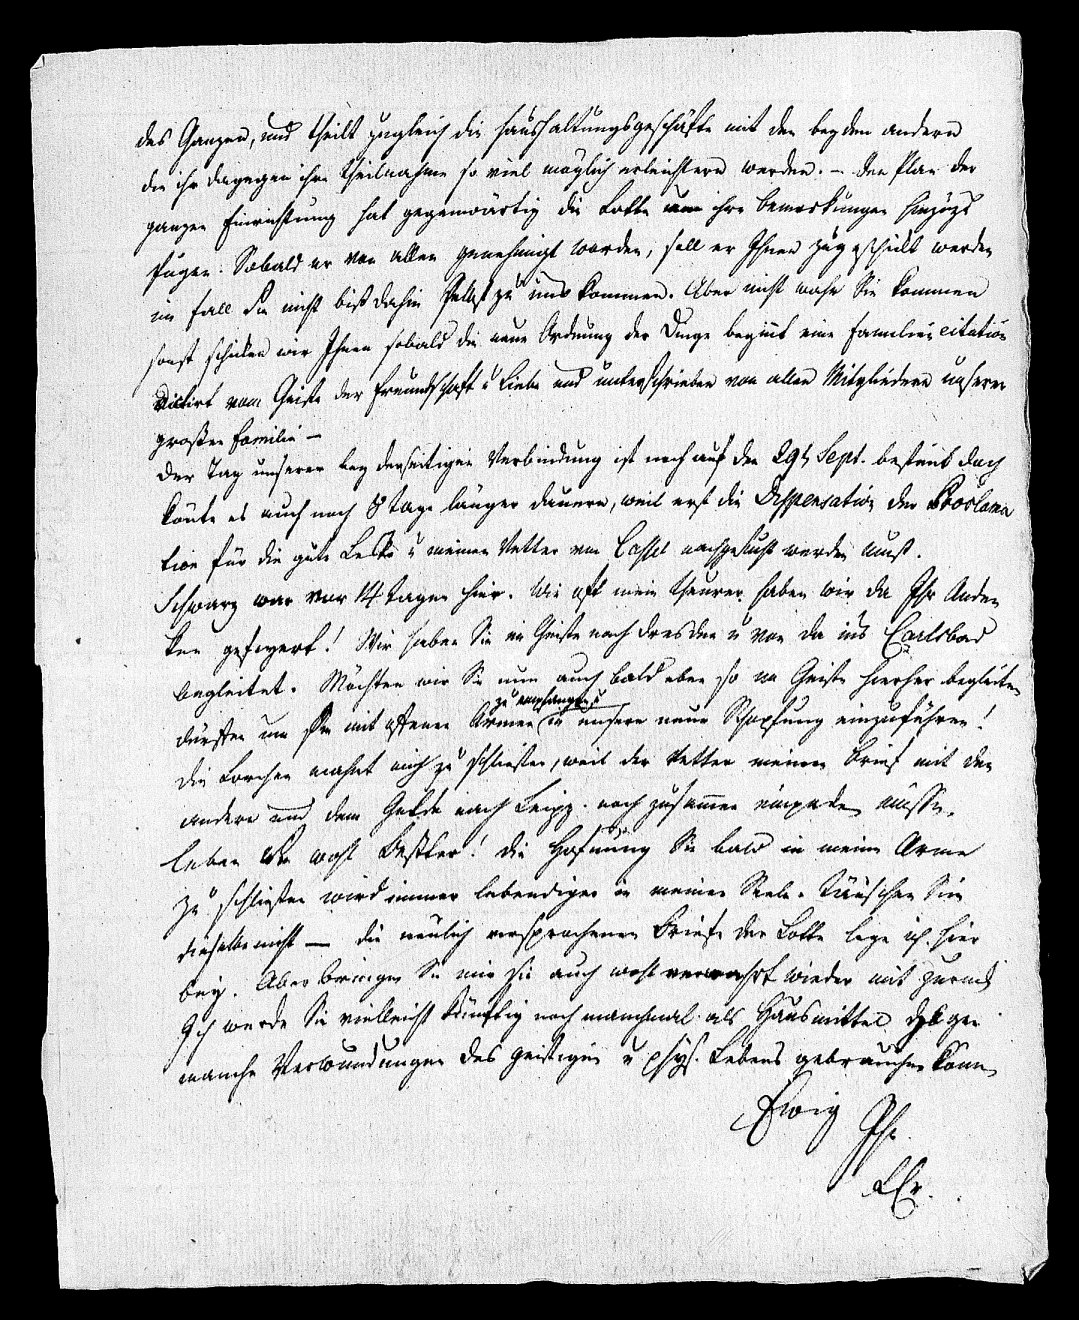 des Ganzen, und theilt zugleich die Haushaltungsgeschäfte mit den beyden andern
die ihr dagegen ihre Theilnahme so viel möglich erleichtern werden. – Der Plan der
ganzen Einrichtung hat gegenwärtig die Lotte um ihre Bemerkungen hinzuzu
fügen. Sobald er von allen genehmigt worden, soll er Ihnen zugeschickt werden
im Fall Sie nicht biß dahin selbst zu uns kommen. Aber nicht wahr Sie kommen
sonst schicken wir Ihnen sobald die neue Ordnung der Dinge beginnt eine Familien citation
dictirt vom Geiste der Freundschaft u Liebe und unterschrieben von allen Mitgliedern unserer
großen Familie –
Der Tag unserer beyderseitigen Verbindung ist noch auf den 29t Sept. bestimt doch
könte es auch noch 8 Tage länger dauern, weil erst die Dispensation der Proclama
tion für die gute Leske u meinen Vetter von Cassel nachgesucht werden muß.
Schwarz war vor 14 Tagen hier. Wie oft mein theurer haben wir da Ihr Anden
ken gefeyert! Wir haben Sie im Geiste nach Dresden u von da ins Carlsbad
begleitet. Möchten wir Sie nun auch bald eben so im Geiste hierher begleiten
dürften um Sie mit offenen Armen zu empfangen u in unsere neue Schöpfung einzuführen!
Die Lorchen mahnt mich zu schließen, weil der Vetter meinen Brief mit den
andern und dem Gelde nach Leipz. noch zusammen einpacken müsse.
Leben Sie wohl Bester! Die Hofnung Sie bald in meine Arme
zu schließen wird immer lebendiger in meiner Seele. Täuschen Sie
dieselbe nicht — die neulich versprochenen Briefe der Lotte lege ich hier
bey. Aber bringen Sie mir sie auch wohl verwahrt wieder mit zurück
Ich werde Sie vielleicht künftig noch manchmal als Hausmittel gegen
manche Verwundungen des geistigen u phys. Lebens gebrauchen könn
Ewig Ihr
LCr.